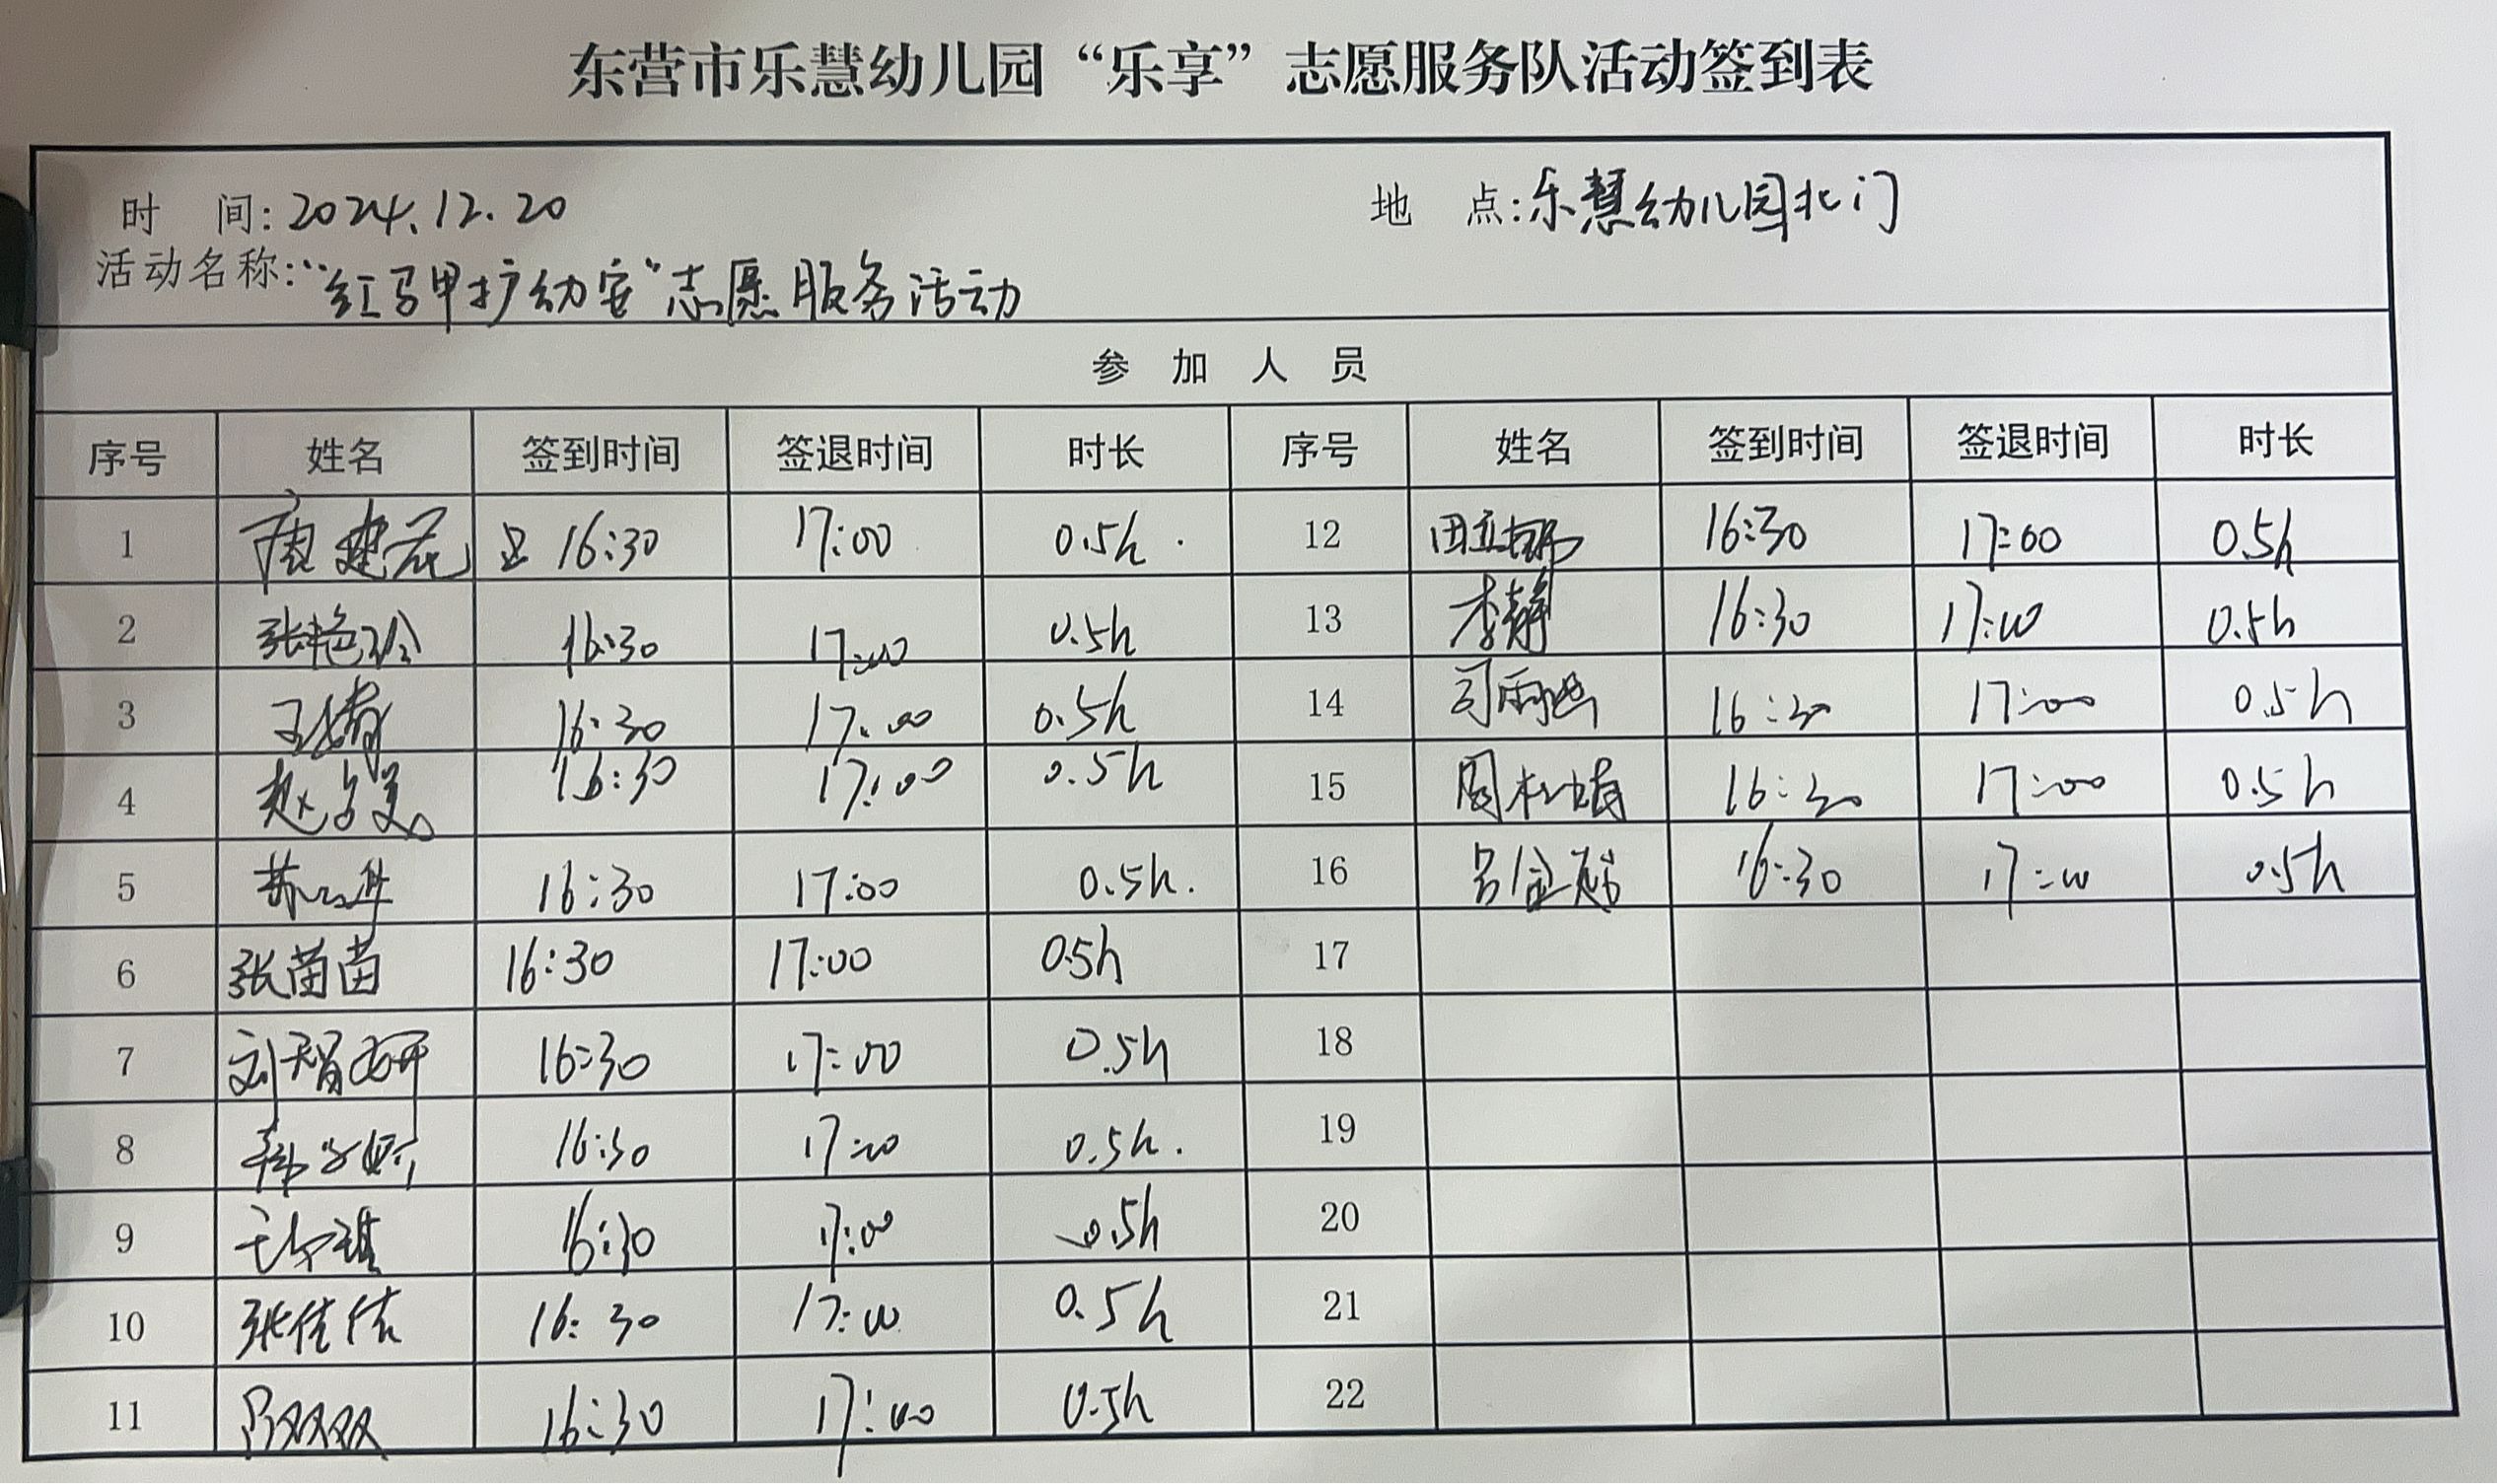 东营市乐慧幼儿园“乐享”志愿服务队活动签到表
时 间: 2024.12.20 地 点: 乐慧幼儿园北门
活动名称: “红马甲护幼安”志愿服务活动
参 加 人 员
序号 姓名 签到时间 签退时间 时长 序号 姓名 签到时间 签退时间 时长
1 16:30 17:00 0.5h. 12 田立娜 16:30 17:00 0.5h
2 张艳玲 16:30 17:00 0.5h 13 李静 16:30 17:00 0.5h
3 王婧 16:30 17:00 0.5h 14 司雨 16:30 17:00 0.5h
4 赵 16:30 17:00 0.5h 15 周 16:30 17:00 0.5h
5 苏 16:30 17:00 0.5h. 16 吕金 16:30 17:00 0.5h
6 张苗苗 16:30 17:00 0.5h 17
7 刘智妍 16:30 17:00 0.5h 18
8 韩 16:30 17:00 0.5h. 19
9 16:30 17:00 0.5h 20
10 张佳佳 16:30 17:00 0.5h 21
11 双双 16:30 17:00 0.5h 22